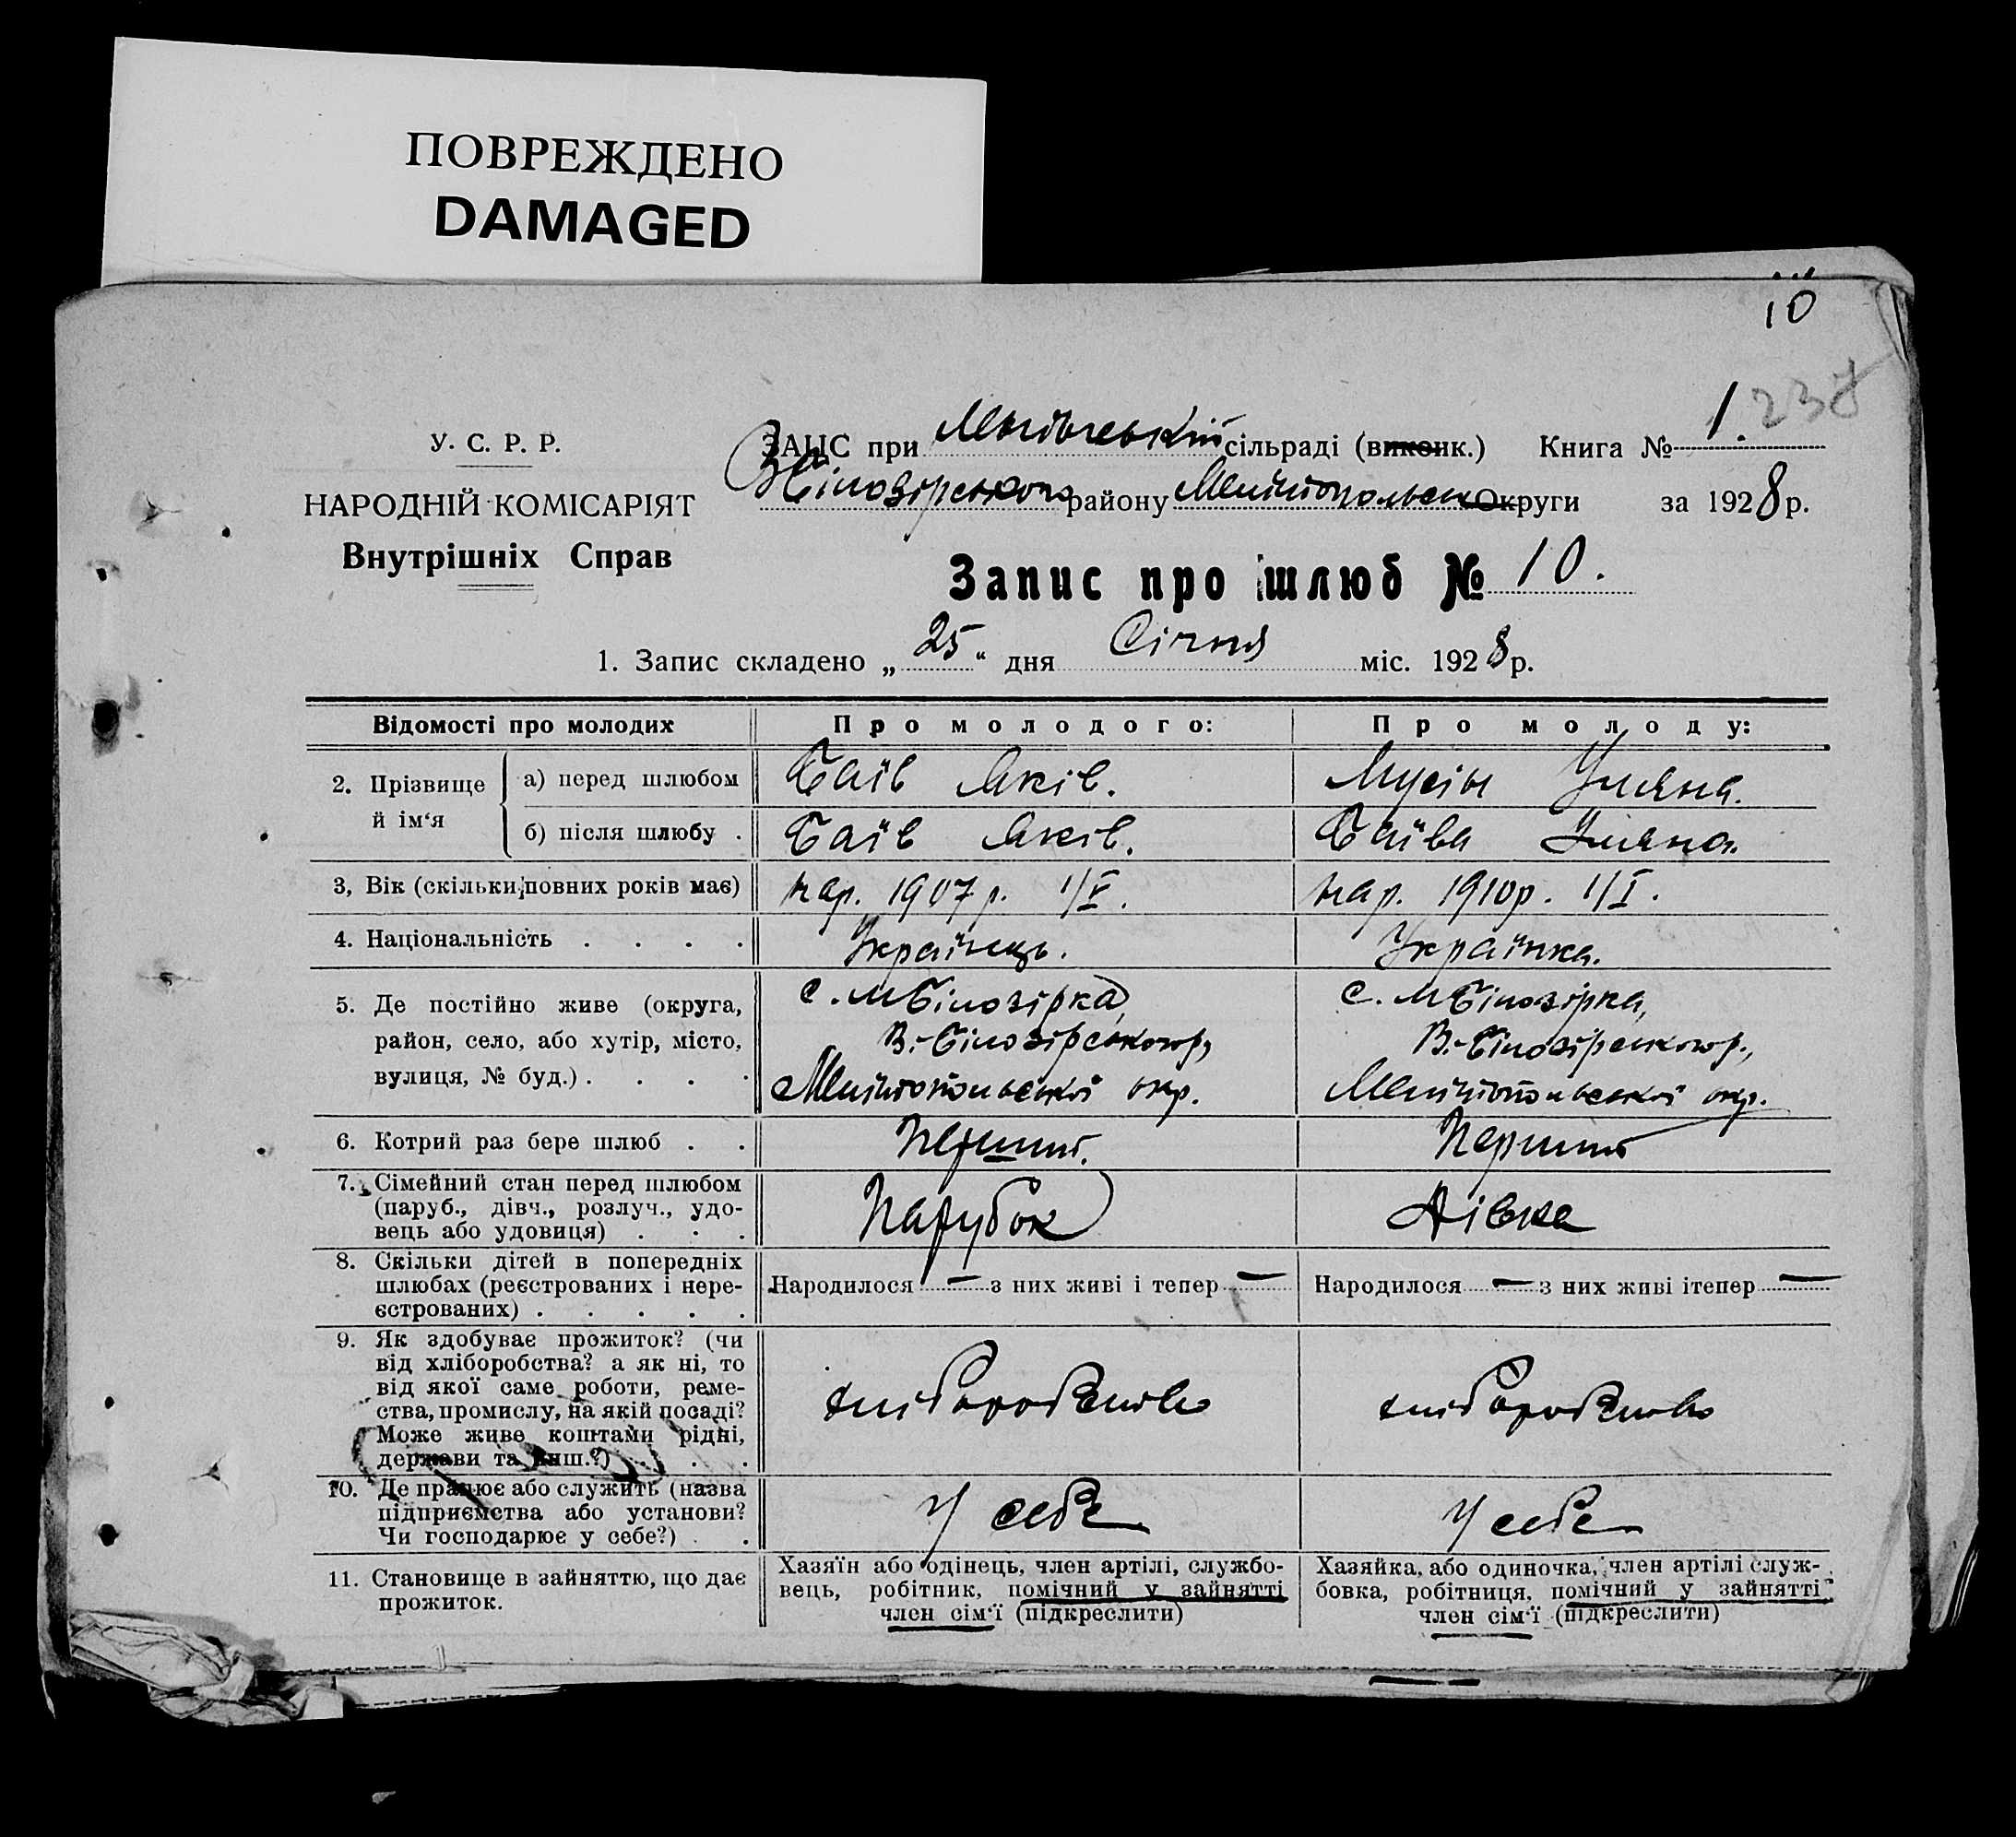 ПОВРЕЖДЕНО
DAMAGED
10
1. 238
У. С. Р. Р.
НАРОДНІЙ КОМІСАРІЯТ
Внутрішніх Справ
ЗАЦС при сільраді (виконк.) Книга №
району Мелітопольськ округи за 1928 р.
Запис про шлюб № 10.
1. Запис складено „ 25 “ дня Січня міс. 1928 р.
Відомості про молодих Про молодого: Про молоду:
2. Прізвище й ім‘я
а) перед шлюбом Баїв Яків. Мусін Уляна.
б) після шлюбу . Баїв Яків. Баїва Уляна.
3, Вік (скільки повних років має) нар. 1907 р. 1/V. нар. 1910 р. 1/I.
4. Національність . . . . Українець. Українка.
5. Де постійно живе (округа, с. М Білозірка, с. М Білозірка,
район, село, або хутір, місто, В.-Білозірського р, В.-Білозірського р.,
вулиця, № буд.) . . . . Мелітопольської окр. Мелітопольської окр.
6. Котрий раз бере шлюб . . Перший. Перший
7. Сімейний стан перед шлюбом
(паруб., дівч., розлуч., удо- Парубок Дівка
вець або удовиця) . . .
8. Скільки дітей в попередніх
шлюбах (реєстрованих і нере- Народилося — з них живі і тепер — Народилося — з них живі ітепер —
єстрованих) . . . . .
9. Як здобуває прожиток? (чи
від хліборобства? а як ні, то
від якої саме роботи, реме- хліборобство хліборобство
ства, промислу, на якій посаді?
Може живе коштами рідні,
держави та инш.?) . . .
10. Де працює або служить (назва
підприємства або установи? У себе У себе
Чи господарює у себе?) . .
11. Становище в зайняттю, що дає
прожиток.
Хазяїн або одінець, член артілі, службо-
вець, робітник, помічний у зайнятті
член сім‘ї (підкреслити)
Хазяйка, або одиночка, член артілі служ-
бовка, робітниця, помічний у зайнятті
член сім‘ї (підкреслити)